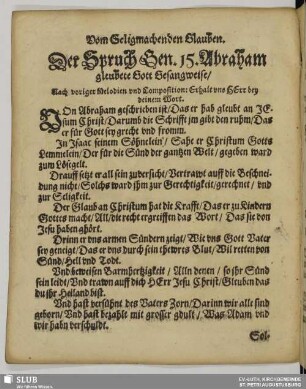 Vom Seligmachenden Glauben.
Der Spruch Gen. 15. Abraham
gleubete Gott Gesangweise/
Nach voriger Melodien vnd Composition: Erhalt vns HErr bey
deinem Wort.
VOn Abraham geschrieben ist/ Das er hab gleubt an JE-
sum Christ/ Darumb die Schrifft jm gibt den ruhm/ Das
er für Gott sey grecht vnd fromm.
In Isaac seinem Söhnelein/ Sahe er Christum Gotts
Lemmelein/ Der für die Sünd der gantzen Welt/ gegeben ward
zum Lösgelt.
Drauff setzt er all sein zuversicht/ Vertrawt auff die Beschnei-
dung nicht/ Solchs ward jhm zur Gerechtigkeit/ gerechnet/ vnd
zur Seligkeit.
Der Glaub an Christum hat die Krafft/ Das er zu Kindern
Gottes macht/ All/ die recht ergreiffen das Wort/ Das sie von
Jesu haben ghört.
Drinn er vns armen Sündern zeigt/ Wie vns Gott Vater
sey geneigt/ Das er vns durch sein thewres Blut/ Wil retten von
Sünd/ Hell vnd Todt.
Vnd beweisen Barmhertzigkeit/ Alln denen/ so jhr Sünd
sein leidt/ Vnd trawn auff dich HErr Jesu Christ/ Gleuben das
du jhr Heiland bist.
Vnd hast versühnt des Vaters Zorn/ Darinn wir alle sind
geborn/ Vnd hast bezahlt mit grosser gdult/ Was Adam vnd
wir habn verschuldt.
Sol-
SLUB
Wir führen Wissen.
EV.-LUTH. KIRCHGEMEINDE
ST. PETRI AUGUSTUSBURG